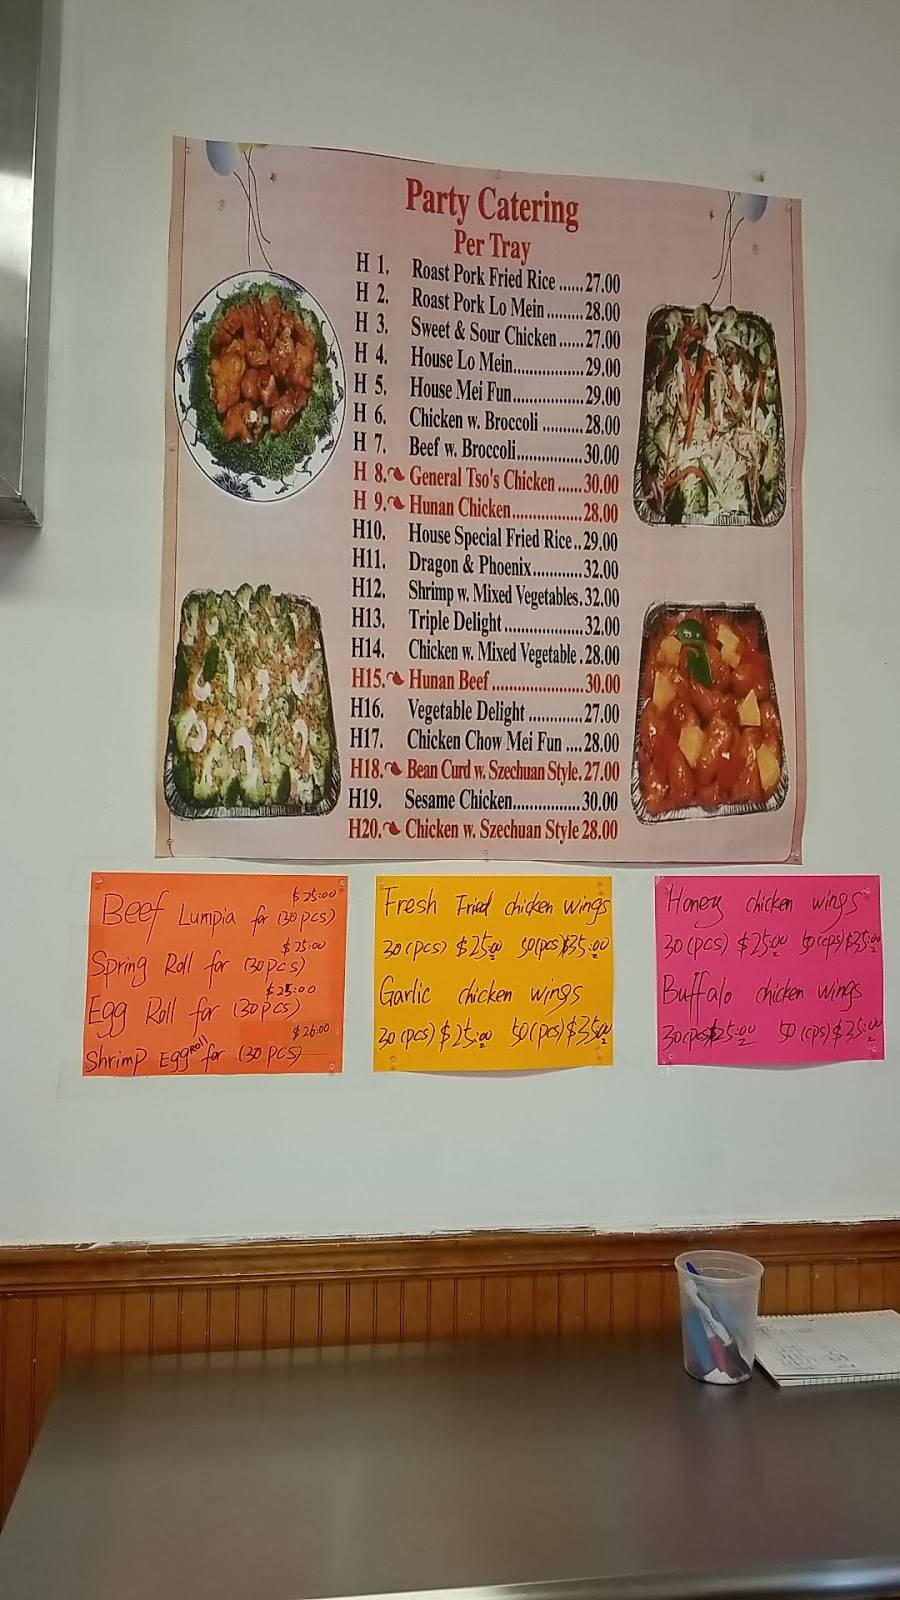 Party Catering
Per Tray
H 1. Roast Pork Fried Rice ......27.00
H 2. Roast Pork Lo Mein.........28.00
H 3. Sweet & Sour Chicken......27.00
H 4. House Lo Mein.................29.00
H 5. House Mei Fun.................29.00
H 6. Chicken w. Broccoli ..........28.00
H 7. Beef w. Broccoli................30.00
H 8. General Tso's Chicken ......30.00
H 9. Hunan Chicken.................28.00
H10. House Special Fried Rice..29.00
H11. Dragon & Phoenix............32.00
H12. Shrimp w. Mixed Vegetables.32.00
H13. Triple Delight....................32.00
H14. Chicken w. Mixed Vegetable.28.00
H15. Hunan Beef.......................30.00
H16. Vegetable Delight.............27.00
H17. Chicken Chow Mei Fun ....28.00
H18. Bean Curd w. Szechuan Style.27.00
H19. Sesame Chicken................30.00
H20. Chicken w. Szechuan Style 28.00
$25:00
Beef Lumpia for (30 pcs)
$25:00
Spring Roll for (30 pcs)
$25:00
Egg Roll for (30 pcs)
$26:00
Shrimp Egg roll for (30 pcs)
Fresh Fried chicken wings
30 (pcs) $25:00 50 (pcs) $35:00
Garlic chicken wings
30 (pcs) $25:00 50 (pcs) $35:00
Honey chicken wings
30 (pcs) $25:00 50 (cps) $35:00
Buffalo chicken wings
30 (pcs) $25:00 50 (cps) $35:00